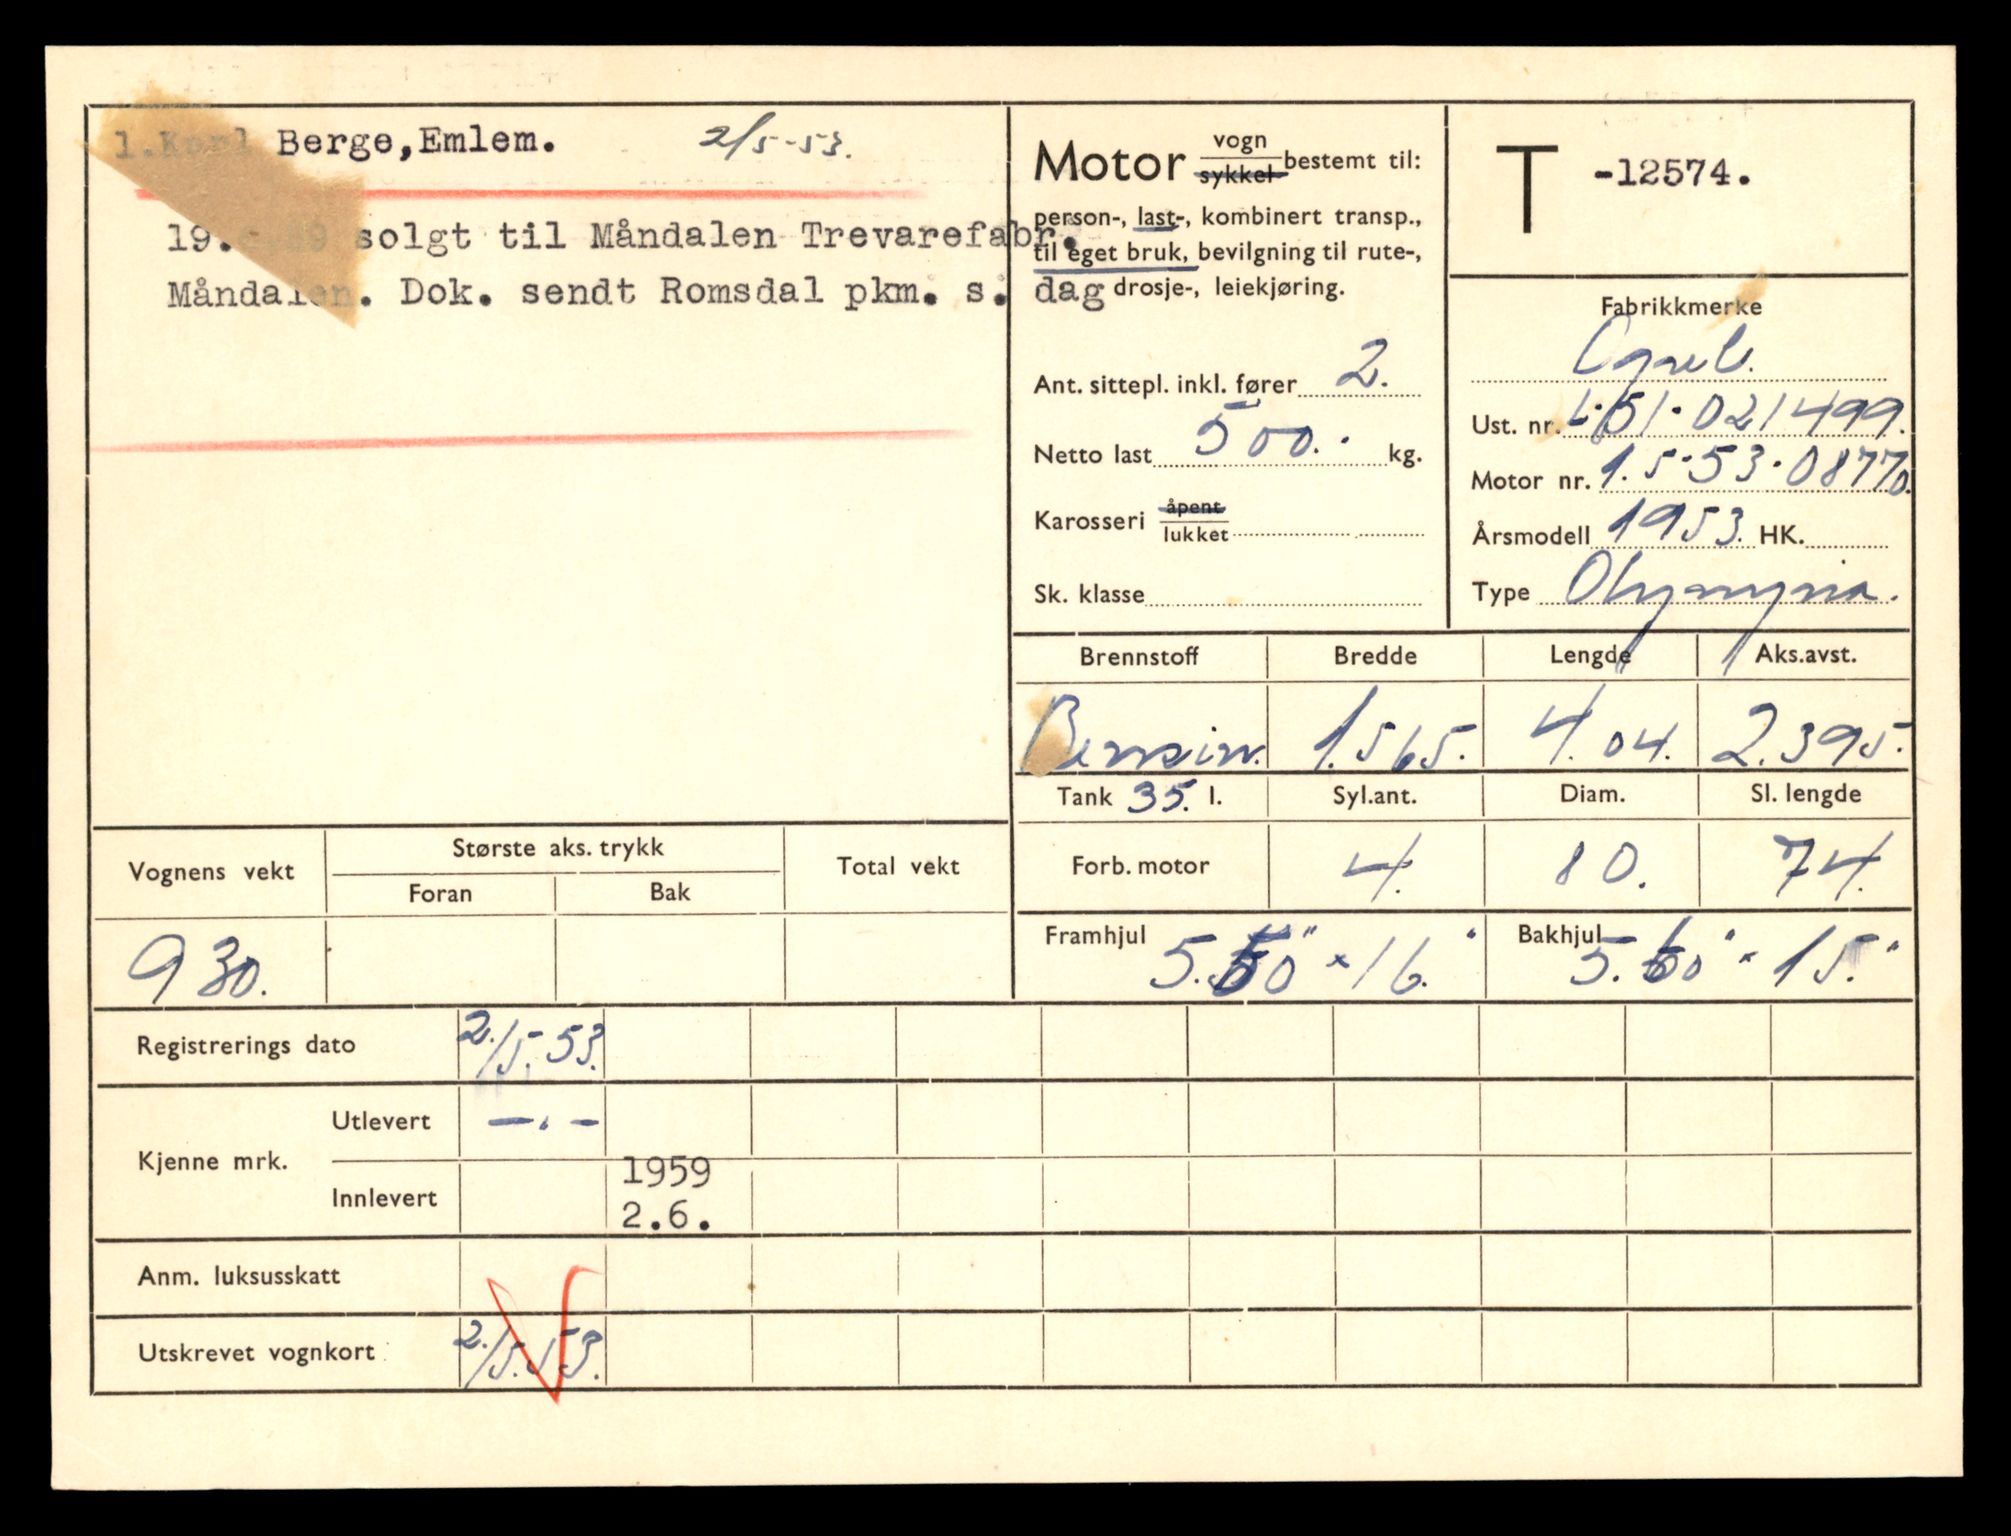 1.Karl Berge,Emlem. 2/5-53.
19. solgt til Måndalen Trevarefabr.
Måndalen. Dok. sendt Romsdal pkm. s. dag
Motor vogn / sykkel bestemt til:
person-, last-, kombinert transp.,
til eget bruk, bevilgning til rute-,
drosje-, leiekjøring.
Ant. sittepl. inkl. fører 2.
Netto last 500. kg.
Karosseri åpent / lukket
Sk. klasse
T -12574.
Fabrikkmerke
Opel.
Ust. nr. L.51.021499.
Motor nr. 1.5.53.08770.
Årsmodell 1953. HK.
Type Olympia.
Brennstoff Bredde Lengde Aks.avst.
Bensin. 1.565. 4.04. 2.395.
Tank 35. l. Syl.ant. Diam. Sl. lengde
Forb. motor 4. 80. 74.
Framhjul 5. 0" × 16." Bakhjul 5. 0" × 15."
Vognens vekt Største aks. trykk Total vekt
Foran Bak
930.
Registrerings dato 2./5.53.
Kjenne mrk. Utlevert — . —
Innlevert 1959
2.6.
Anm. luksusskatt
Utskrevet vognkort 2./5.53.